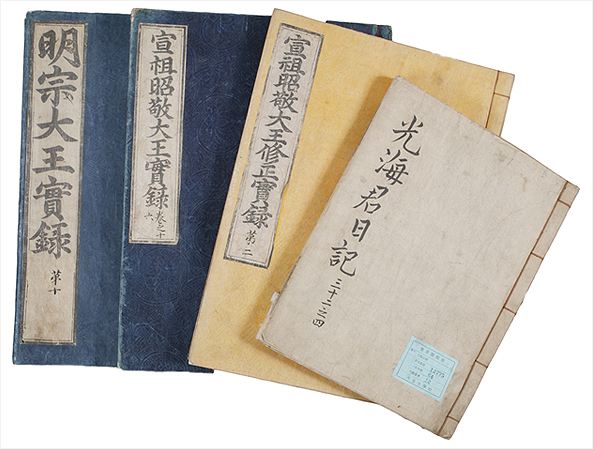 明宗大王實錄
苐十
宣祖昭敬大王實錄
卷之十
六
宣祖昭敬大王修正實錄
苐二
光海君日記
三十二之四